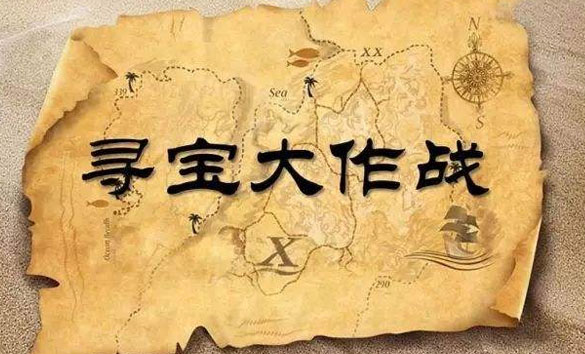 N
XX
339
Sea
S
寻宝大作战
Ocean Beach
X
290